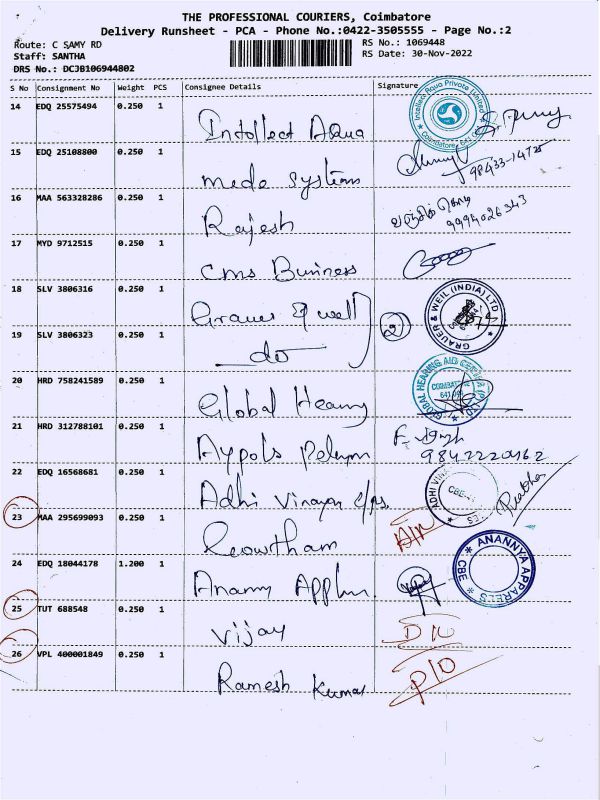 THE PROFESSIONAL COURIERS, Coimbatore
Delivery Runsheet - PCA - Phone No.:0422-3505555 - Page No.:2
Route: C SAMY RD RS No.: 1069448
Staff: SANTHA RS Date: 30-Nov-2022
DRS No.: DCJB106944802
S No Consignment No Weight PCS Consignee Details Signature
14 EDQ 25575494 0.250 1
Intellect Aqua
15 EDQ 25108800 0.250 1
98433-14725
Mede Systems
16 MAA 563328286 0.250 1
Rajesh 9994026343
17 MYD 9712515 0.250 1
CMS Business
18 SLV 3806316 0.250 1
Grauer & well 2
GRAUER & WEIL (INDIA) LTD
19 SLV 3806323 0.250 1
do
20 HRD 758241589 0.250 1
Global Hearing
GLOBAL HEARING AID
21 HRD 312788101 0.250 1
9842220162
22 EDQ 16568681 0.250 1
Adhi Vinaya
ADHI VINA
CBE
23 MAA 295699093 0.250 1
Gowtham
24 EDQ 18044178 1.200 1
ANANNYA APPARELS
CBE
25 TUT 688548 0.250 1
Vijay
26 VPL 400001849 0.250 1
Ramesh Kumar